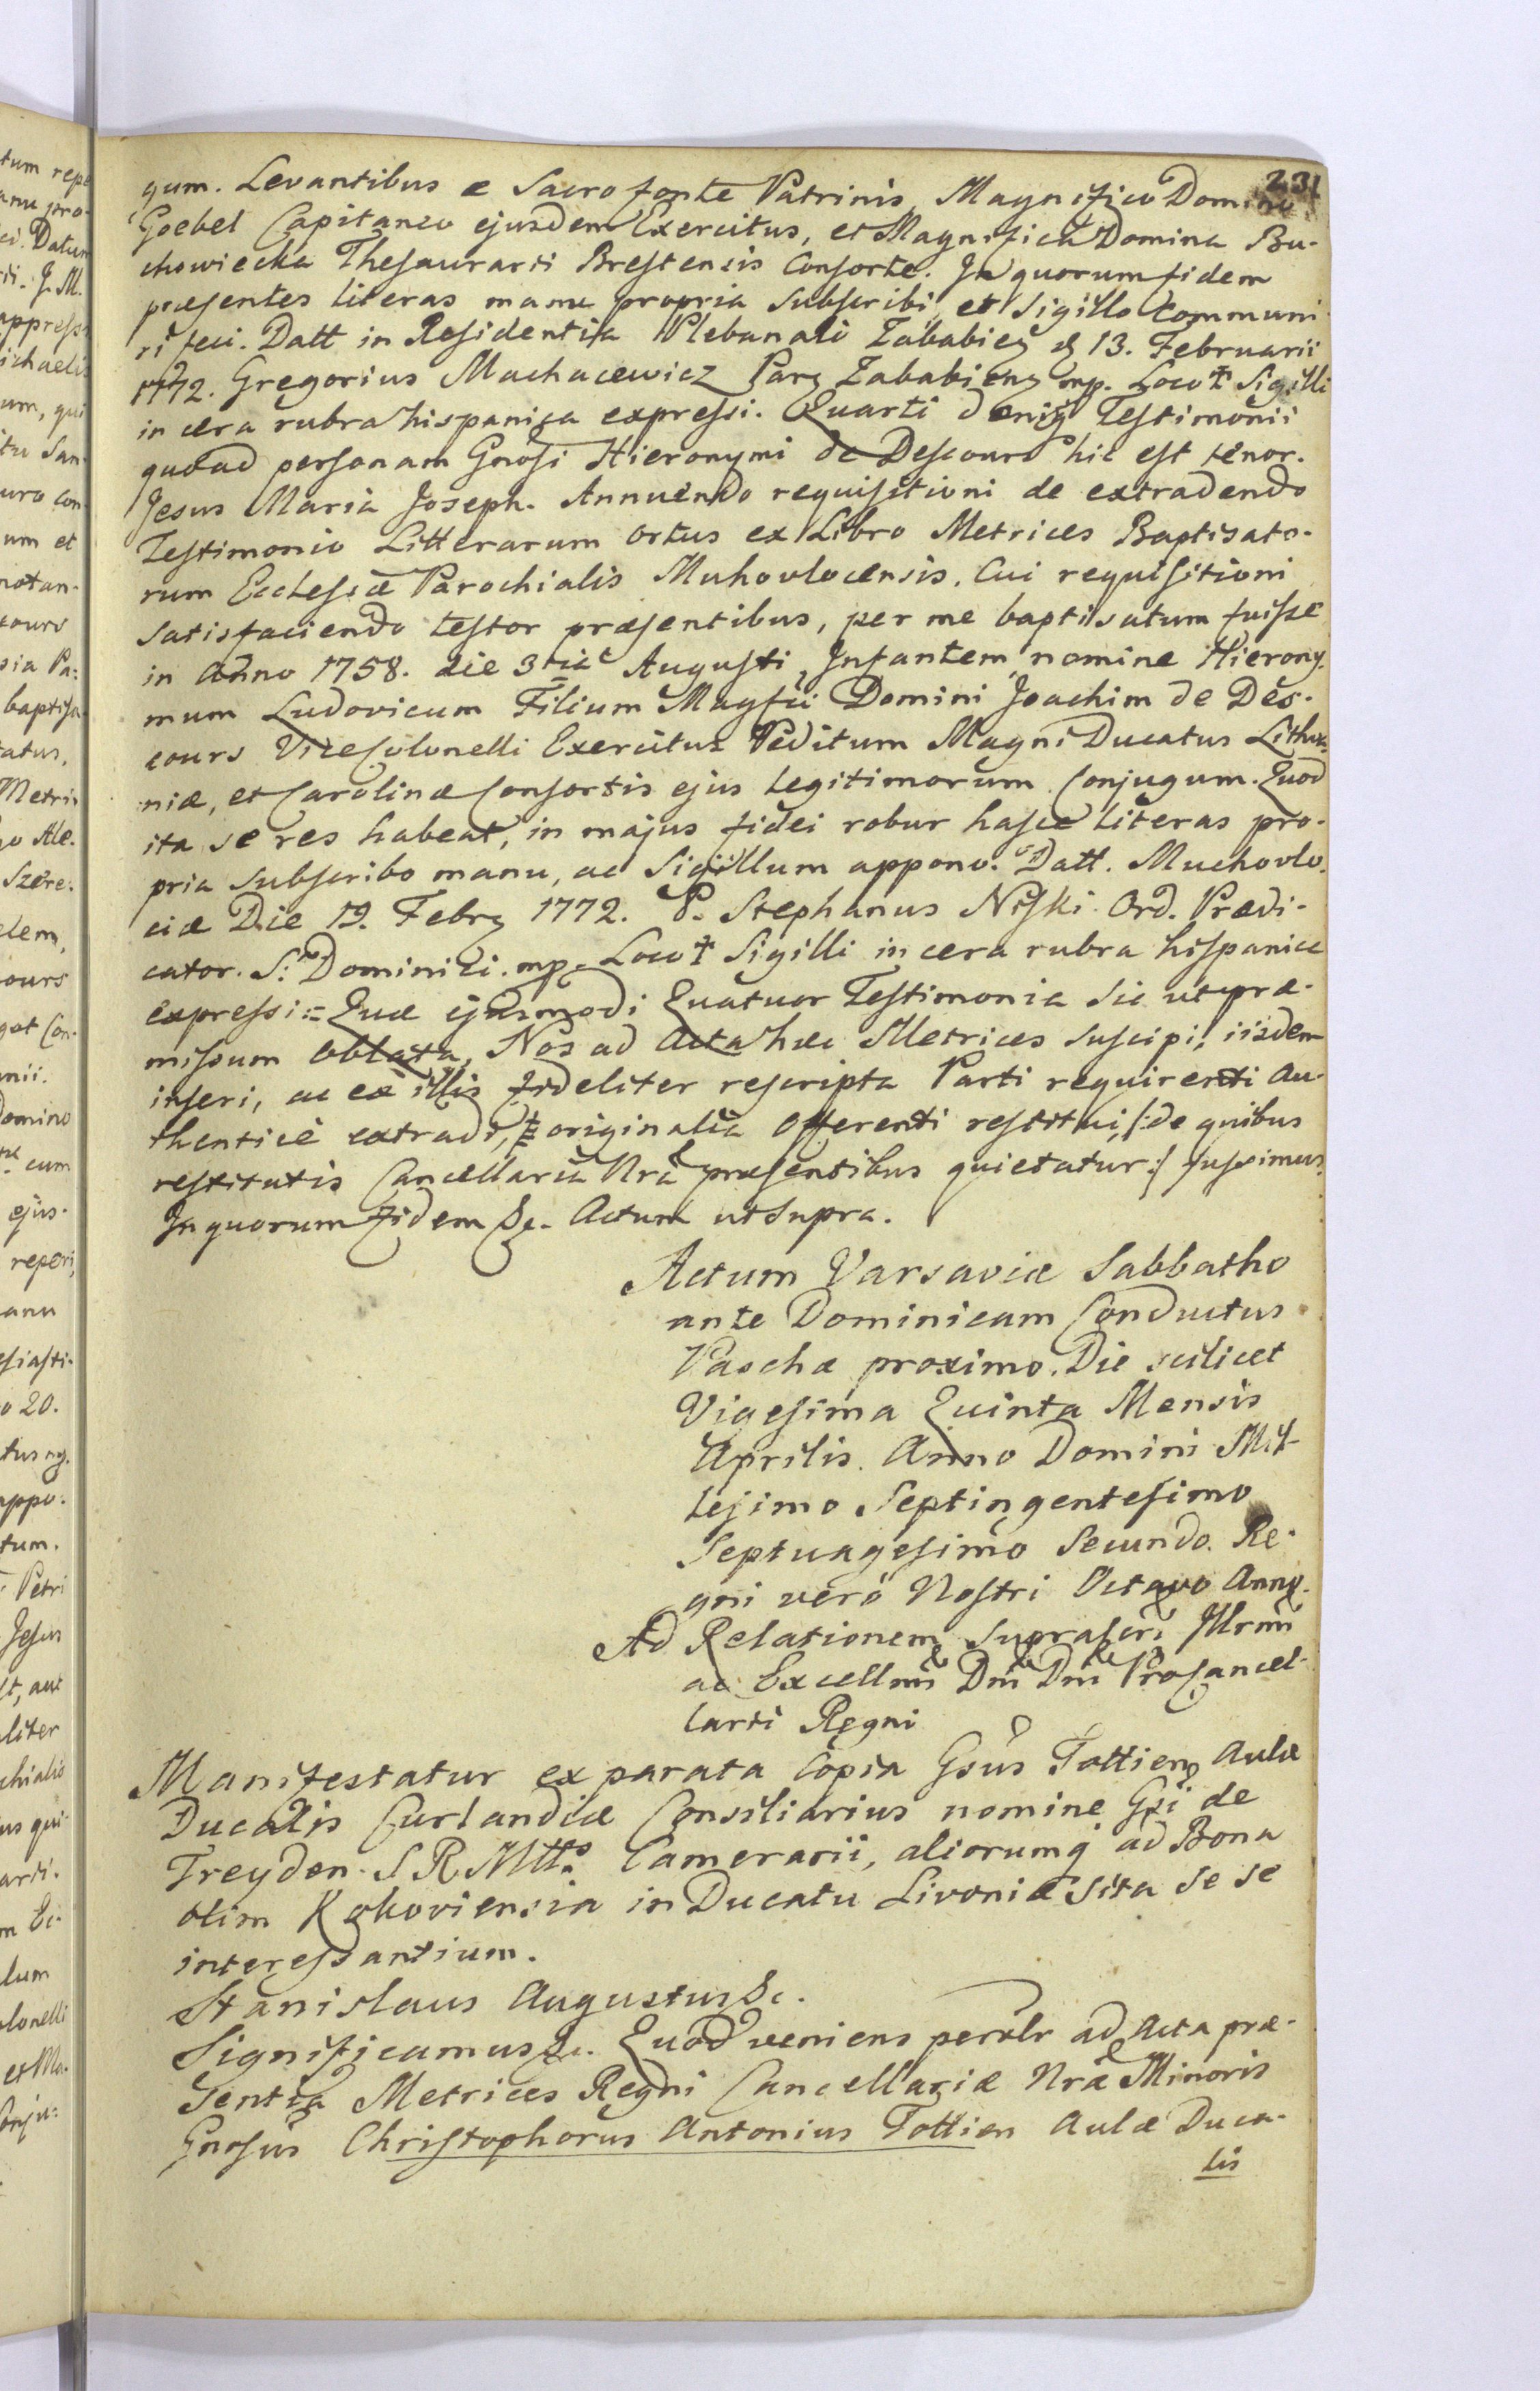 231
gum. Levantibus e Sacro fonte Patrinis, Magnifico Domino
Goebel Capitaneo ejusdem Exercitus, et Magnifica Domina Bu-
chowiecka Thesaurarii Brestensis Consorte. In quorum fidem
præsentes literas manu propria subscribi, et Sigillo Communi-
ri feci. Datt in Residentia Plebanali Zababicz d 13. Februarii
1772. Gregorius Machacewicz Parz Zababieng mp. Loco † Sigilli
in cera rubra hispanica expressi. Quarti deniq Testimonii
quoad personam Gnosi Hieronymi de Descours hic est tenor.
Jesus Maria Joseph. Annuendo requisitioni de extradendo
Testimonio Litterarum ortus ex Libro Metrices Baptisato-
rum Ecclesiæ Parochialis Muhovlocensis. Cui requisitioni
satisfaciendo testor præsentibus, per me baptisatum fuisse
in Anno 1758. die 3tia Augusti, Infantem nomine Hierony-
mum Ludovicum Filium Magfci Domini Joachim de Des-
cours ViceColonelli Exercitus Peditum Magni Ducatus Lithua-
niæ, et Carolinæ Consortis ejus legitimorum Conjugum. Quod
ita se res habeat, in majus fidei robur hasce literas pro-
pria subscribo manu, ac Sigillum appono. Datt. Muchovlo-
ciæ Die 19. Febrz 1772. P. Stephanus Niski Ord. Prædi-
cator. S: Dominici. mp. Loco † Sigilli in cera rubra hispanica
expressi = Quæ ejusmodi Quatuor Testimonia sic ut præ-
missum oblata, Nos ad Acta hæc Metrices suscipi, iisdem
inseri, ac ex illis fideliter rescripta Parti requirenti au-
thentice extradi, originalia Offerenti restitui /:de quibus
restitutis Cancellaria Nra præsentibus quietatur:/ jussimus.
In quorum fidem &c. Actum ut supra.
Actum Varsaviæ Sabbatho
ante Dominicam Conductus
Paschæ proximo. Die scilicet
Vigesima Quinta Mensis
Aprilis. Anno Domini Mil-
lesimo Septingentesimo
Septuagesimo Secundo. Re-
gni vero Nostri Octavo Anno.
Ad Relationem suprascri Illrmi
ac Excellmi Dni Dni ProCancel-
larii Regni
Manifestatur ex parata Copia Gsus Tottien Aulæ
Ducalis Curlandiæ Consiliarius nomine Gsi de
Treyden S R Mttis Camerarii, aliorumq ad Bona
olim Kokoviensia in Ducatu Livoniæ sita se se
interessantium.
Stanislaus Augustus &c.
Significamus &c. Quod veniens persolr ad Acta præ-
sentia Metrices Regni Cancellariæ Nræ Minoris
Gnosus Christophorus Antonius Tottien Aulæ Duca-
lis